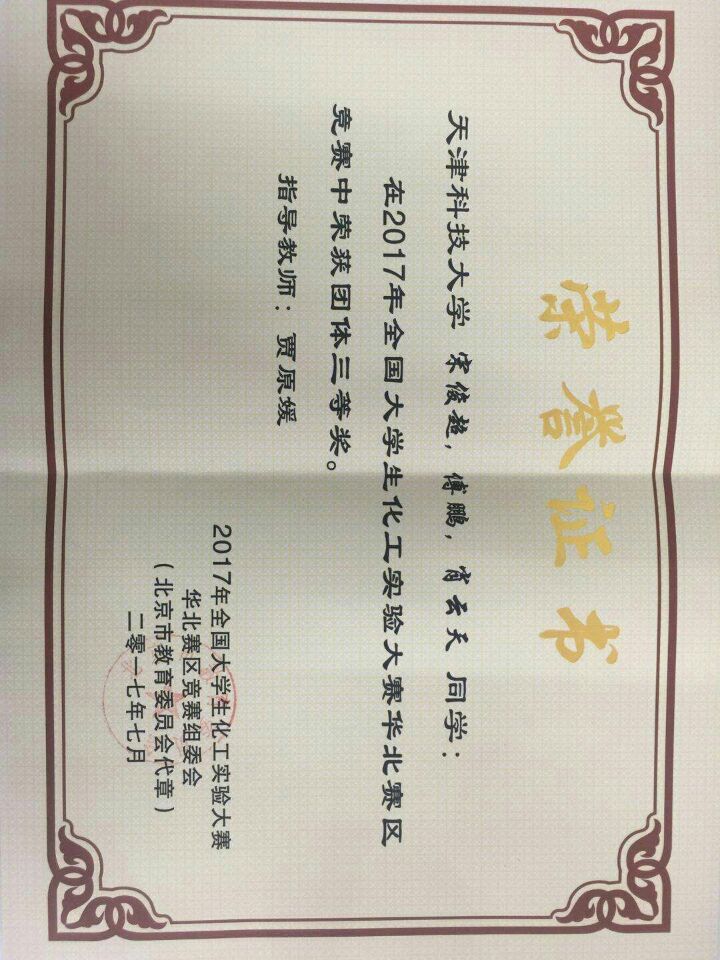 荣誉证书
天津科技大学 宋俊超，傅鹏，肖云天 同学：
在2017年全国大学生化工实验大赛华北赛区
竞赛中荣获团体三等奖。
指导教师：贾原媛
2017年全国大学生化工实验大赛
华北赛区竞赛组委会
（北京市教育委员会代章）
二零一七年七月